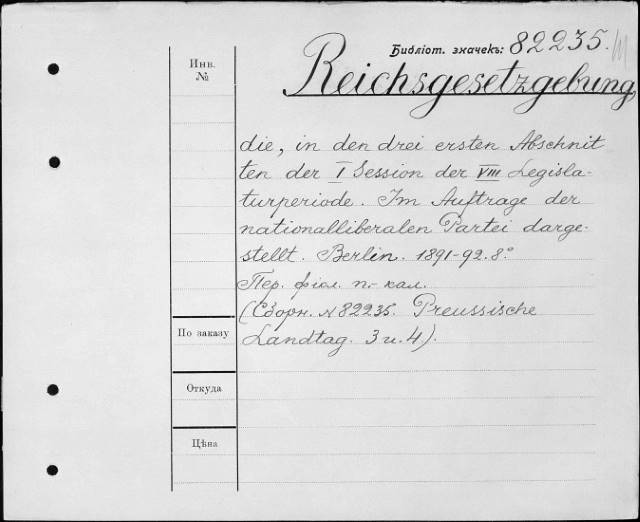 Библіот. значекъ: 82235.
Инв.
№
Reichsgesetzgebung,
die, in den drei ersten Abschnit
ten der I Session der VIII Legisla-
turperiode. Im Auftrage der
nationalliberalen Partei darge-
stellt. Berlin. 1891-92. 8º
Пер. фіол. п.-кал.
(Сборн. № 82235. Preussische
Landtag. 3 u. 4).
По заказу
Откуда
Цѣна